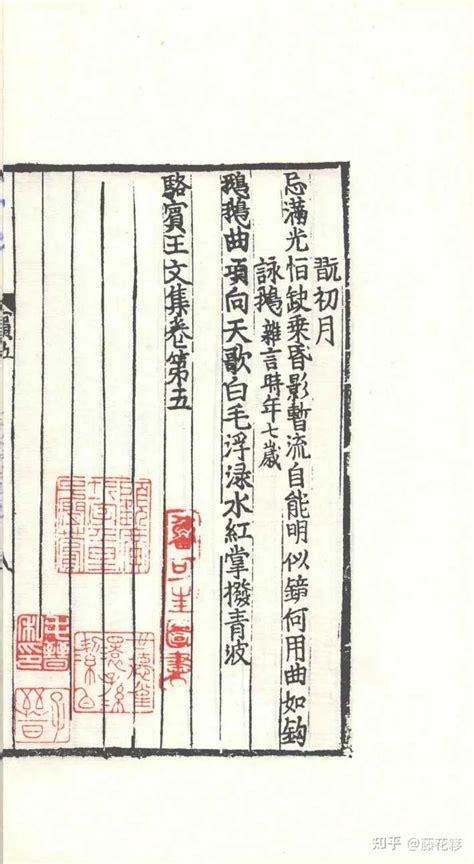 翫初月
忌滿光恒缺乘昏影暫流自能明似鏡何用曲如鈎
詠鵝 雜言時年七歲
鵝鵝曲項向天歌白毛浮淥水紅掌撥青波
駱賓王文集卷第五
毛晉私印
子晉
知乎 @藤花簃